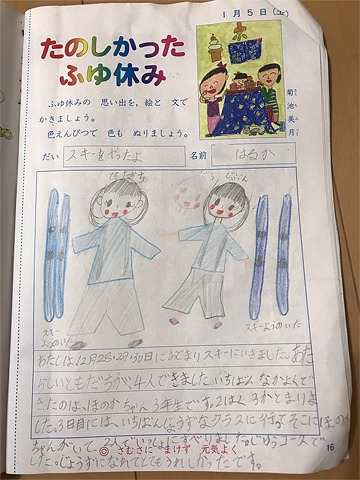 1月5日(土)
たのしかった
ふゆ休み
菊池美月
ふゆ休みの 思い出を、絵と 文で
かきましょう。
色えんぴつで 色も ぬりましょう。
だい スキーをやったよ
名前 はるか
スキー
ようのいた
スキーようのいた
わたしは、12月28・29・30日におとまりスキーにいきました。あた
らしいともだちが4人できました。いちばん なかよくで
きたのは、ほのかちゃん 3年生です。2はく3かとまりま
した。3日目には、いちばんじょうずなクラスに行って そこにほのか
ちゃんがいて、2人でいっしょにすべりました。じゆうコースで
した。じょうずになれてとてもうれしかったです。
◎ さむさに まけず 元気よく
16